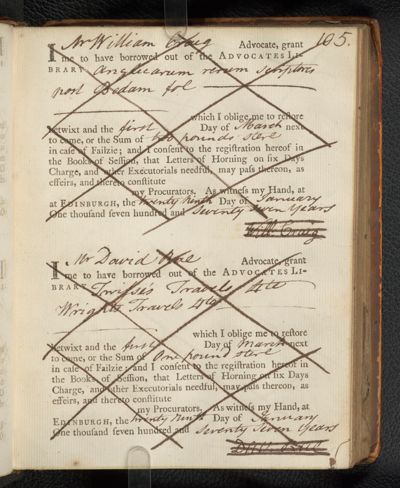 105.
I Mr William Craig Advocate, grant
me to have borrowed out of the ADVOCATES LI-
BRARY Anglicarum rerum Scriptores
post Bedam fol
which I oblige me to restore
betwixt and the first Day of March next
to come, or the Sum of pounds sterl
in case of Failzie; and I consent to the registration hereof in
the Books of Session, that Letters of Horning on six Days
Charge, and other Executorials needful, may pass thereon, as
effeirs, and thereto constitute
my Procurators. As witness my Hand, at
at EDINBURGH, the twenty ninth Day of January
One thousand seven hundred and Seventy Seven Years
Will: Craig
I Mr David Advocate, grant
me to have borrowed out of the ADVOCATES LI-
BRARY Twiss's Travels 4to
Wright's Travels 4to
which I oblige me to restore
betwixt and the first Day of March next
to come, or the Sum of One pound sterl
in case of Failzie; and I consent to the registration hereof in
the Books of Session, that Letters of Horning on six Days
Charge, and other Executorials needful, may pass thereon, as
effeirs, and thereto constitute
my Procurators. As witness my Hand, at
EDINBURGH, the twenty ninth Day of January
One thousand seven hundred and Seventy Seven Years